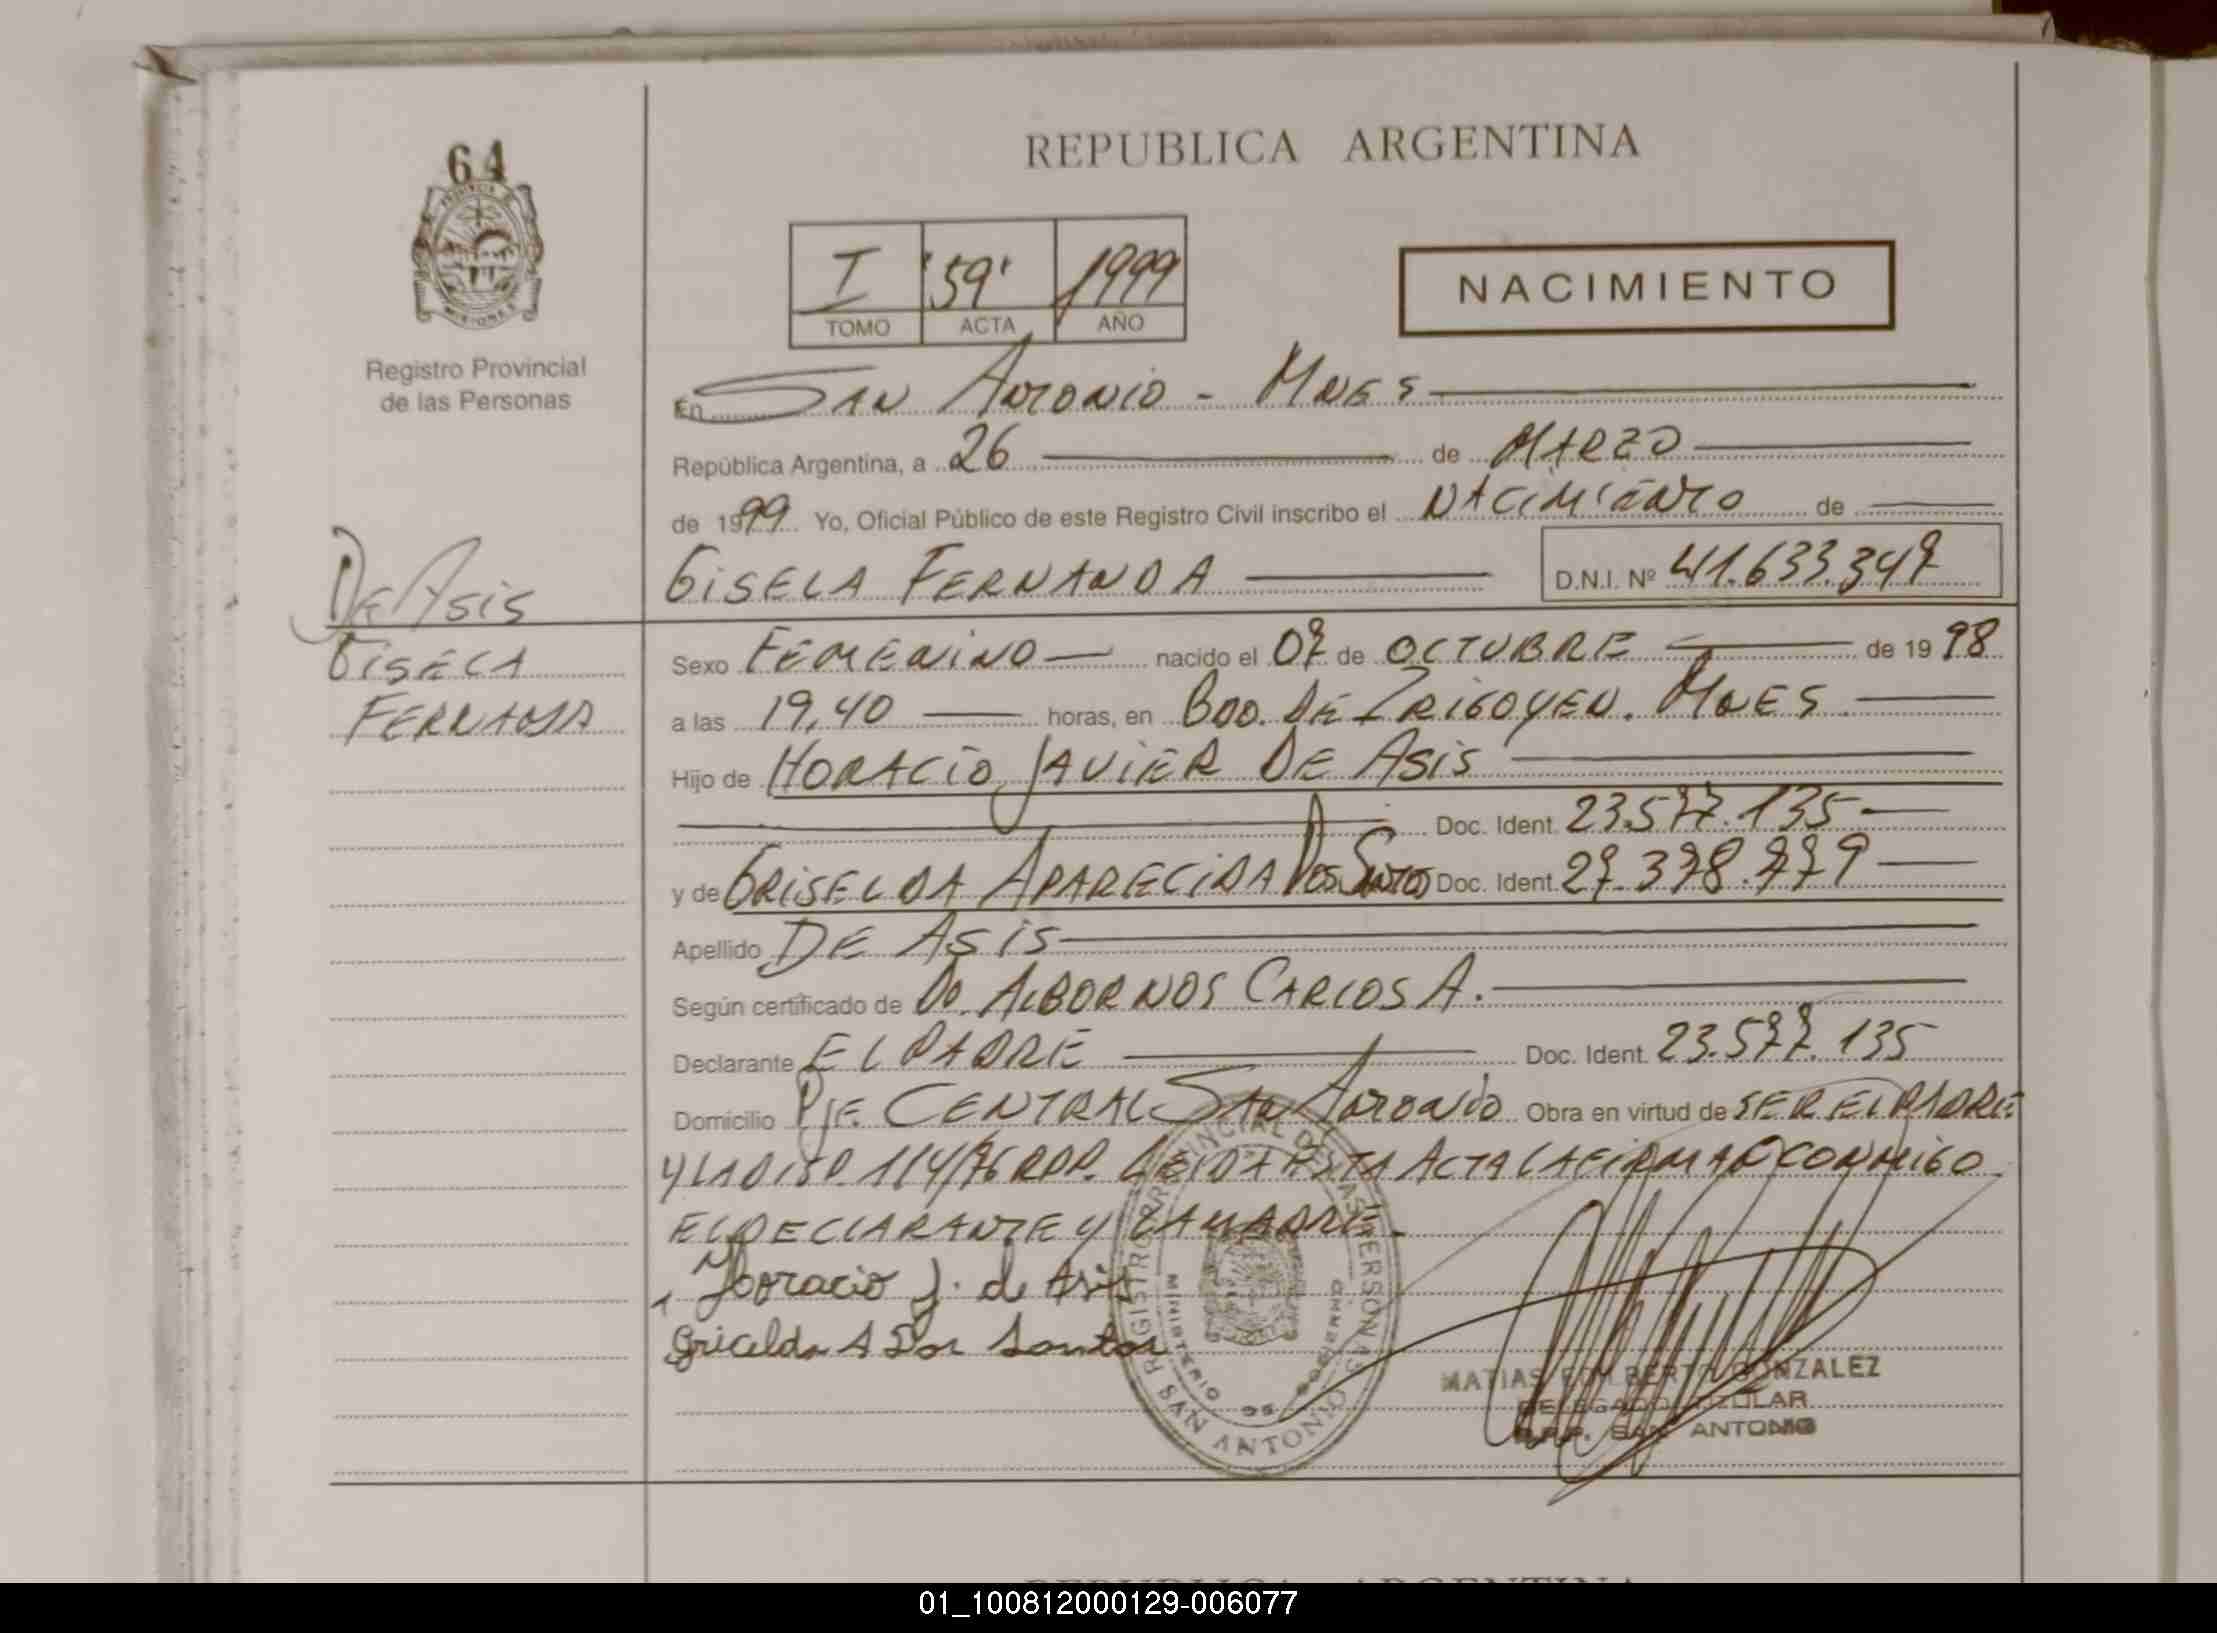 64
REPUBLICA ARGENTINA
I '59' 1999
TOMO ACTA AÑO
NACIMIENTO
Registro Provincial
de las Personas
En SAN ANTONIO - MNES
República Argentina, a 26 de MARZO
de 1999 Yo, Oficial Público de este Registro Civil inscribo el NACIMIENTO de
GISELA FERNANDA D.N.I. Nº 41.633.347
DE ASIS
GISELA
FERNANDA
Sexo FEMENINO nacido el 07 de OCTUBRE de 1998
a las 19,40 horas, en BDO. DE IRIGOYEN. MNES
Hijo de HORACIO JAVIER DE ASIS
Doc. Ident. 23.577.135
y de GRISELDA APARECIDA DOS SANTOS Doc. Ident. 27.378.779
Apellido DE ASIS
Según certificado de DO. ALBORNOS CARLOS A.
Declarante EL PADRE Doc. Ident. 23.577.135
Domicilio PJE. CENTRAL SAN ANTONIO Obra en virtud de SER EL PADRE
Y LA DISP. 114/96 RPP. LEIDA ESTA ACTA LA FIRMAN CONMIGO
EL DECLARANTE Y LA MADRE.
Horacio J. de Asis
Gricelda A Dos Santos
REGISTRO PROVINCIAL DE LAS PERSONAS
MINISTERIO DE GOBIERNO
SAN ANTONIO
MATIAS EDILBERTO GONZALEZ
DELEGADO TITULAR
R.P.P. SAN ANTONIO
REPUBLICA ARGENTINA
01_100812000129-006077